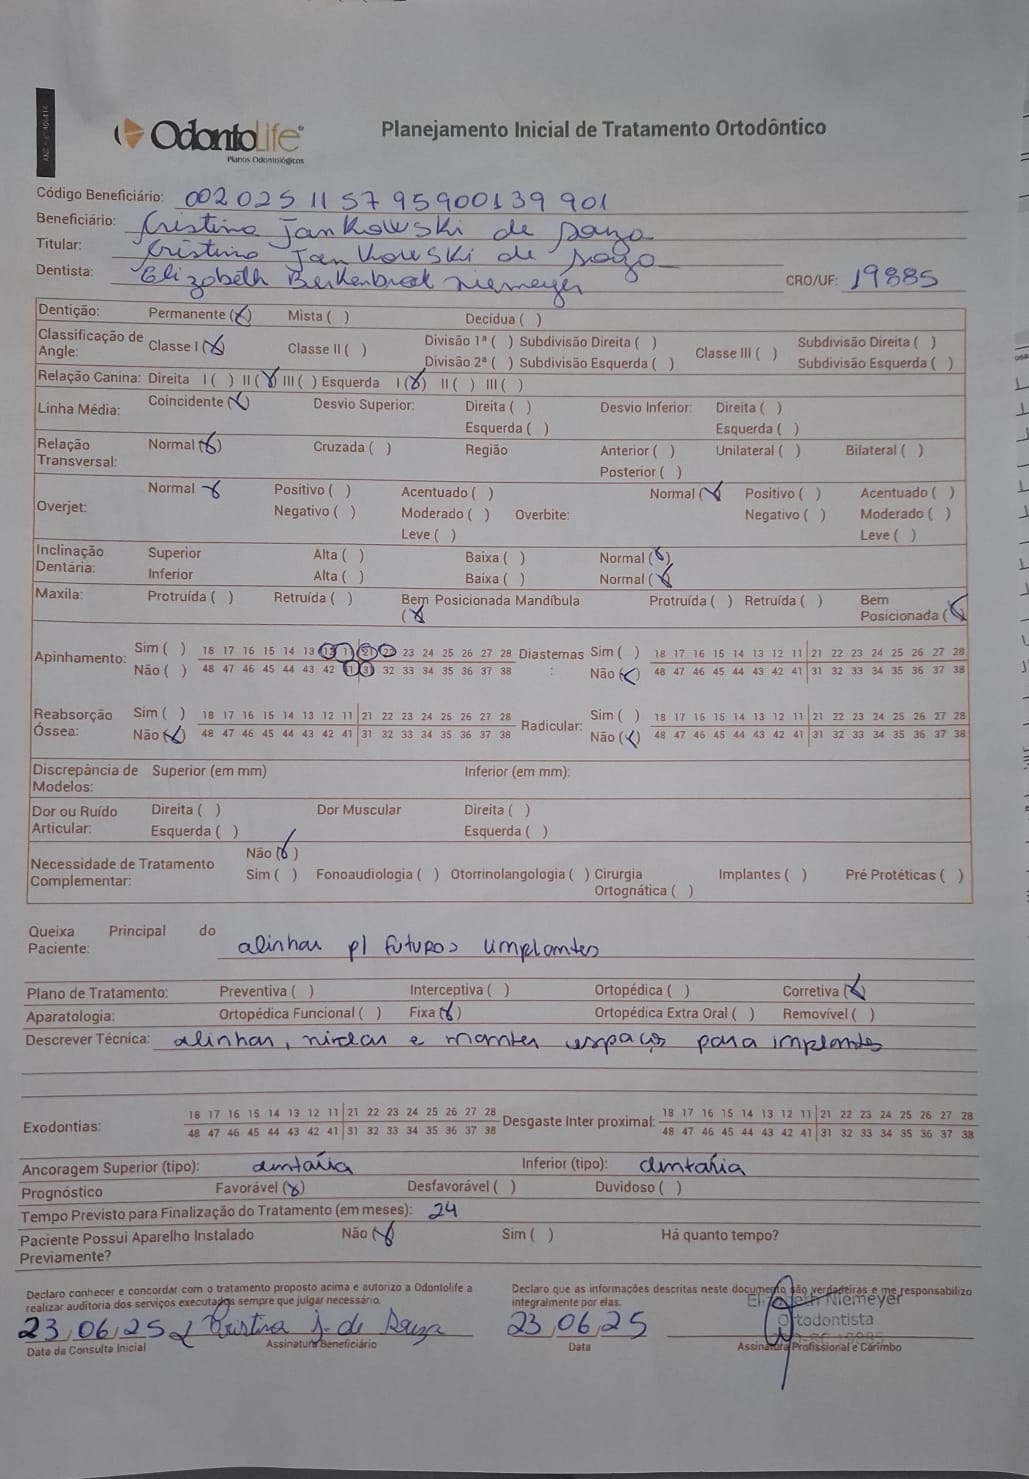 OdontoLife
Planos Odontológicos
Planejamento Inicial de Tratamento Ortodôntico
Código Beneficiário: 002 025 11 57 95900139 901
Beneficiário: Cristina Jankowski de Souza
Titular: Cristina Jankowski de Souza
Dentista: Elizabeth Niemeyer CRO/UF: 19885
Dentição: Permanente (X) Mista ( ) Decídua ( )
Classificação de Angle: Classe I (X) Classe II ( ) Divisão 1ª ( ) Subdivisão Direita ( ) Classe III ( ) Subdivisão Direita ( )
Divisão 2ª ( ) Subdivisão Esquerda ( ) Subdivisão Esquerda ( )
Relação Canina: Direita I ( ) II (X) III ( ) Esquerda I (X) II ( ) III ( )
Linha Média: Coincidente (X) Desvio Superior: Direita ( ) Desvio Inferior: Direita ( )
Esquerda ( ) Esquerda ( )
Relação Transversal: Normal (X) Cruzada ( ) Região Anterior ( ) Unilateral ( ) Bilateral ( )
Posterior ( )
Overjet: Normal X Positivo ( ) Acentuado ( ) Overbite: Normal (X) Positivo ( ) Acentuado ( )
Negativo ( ) Moderado ( ) Negativo ( ) Moderado ( )
Leve ( ) Leve ( )
Inclinação Dentária: Superior Alta ( ) Baixa ( ) Normal (X)
Inferior Alta ( ) Baixa ( ) Normal (X)
Maxila: Protruída ( ) Retruída ( ) Bem Posicionada (X) Mandíbula Protruída ( ) Retruída ( ) Bem Posicionada (X)
Apinhamento: Sim ( ) 18 17 16 15 14 13 12 11 21 22 23 24 25 26 27 28 Diastemas: Sim ( ) 18 17 16 15 14 13 12 11 21 22 23 24 25 26 27 28
Não ( ) 48 47 46 45 44 43 42 41 31 32 33 34 35 36 37 38 Não (X) 48 47 46 45 44 43 42 41 31 32 33 34 35 36 37 38
Reabsorção Óssea: Sim ( ) 18 17 16 15 14 13 12 11 21 22 23 24 25 26 27 28 Radicular: Sim ( ) 18 17 16 15 14 13 12 11 21 22 23 24 25 26 27 28
Não (X) 48 47 46 45 44 43 42 41 31 32 33 34 35 36 37 38 Não (X) 48 47 46 45 44 43 42 41 31 32 33 34 35 36 37 38
Discrepância de Modelos: Superior (em mm) Inferior (em mm):
Dor ou Ruído Articular: Direita ( ) Dor Muscular Direita ( )
Esquerda ( ) Esquerda ( )
Necessidade de Tratamento Complementar: Não (X)
Sim ( ) Fonoaudiologia ( ) Otorrinolangologia ( ) Cirurgia Ortognática ( ) Implantes ( ) Pré Protéticas ( )
Queixa Principal do Paciente: alinhar p/ futuros implantes
Plano de Tratamento: Preventiva ( ) Interceptiva ( ) Ortopédica ( ) Corretiva (X)
Aparatologia: Ortopédica Funcional ( ) Fixa (X) Ortopédica Extra Oral ( ) Removível ( )
Descrever Técnica: alinhar, nivelar e manter espaços para implantes
Exodontias: 18 17 16 15 14 13 12 11 21 22 23 24 25 26 27 28 Desgaste Inter proximal: 18 17 16 15 14 13 12 11 21 22 23 24 25 26 27 28
48 47 46 45 44 43 42 41 31 32 33 34 35 36 37 38 48 47 46 45 44 43 42 41 31 32 33 34 35 36 37 38
Ancoragem Superior (tipo): dentária Inferior (tipo): dentária
Prognóstico Favorável (X) Desfavorável ( ) Duvidoso ( )
Tempo Previsto para Finalização do Tratamento (em meses): 24
Paciente Possui Aparelho Instalado Previamente? Não (X) Sim ( ) Há quanto tempo?
Declaro conhecer e concordar com o tratamento proposto acima e autorizo a Odontolife a
realizar auditoria dos serviços executados sempre que julgar necessário.
Declaro que as informações descritas neste documento são verdadeiras e me responsabilizo
integralmente por elas.
Elizabeth Niemeyer
Ortodontista
23/06/25 Cristina J. de Souza 23/06/25
Data da Consulta Inicial Assinatura Beneficiário Data Assinatura Profissional e Carimbo